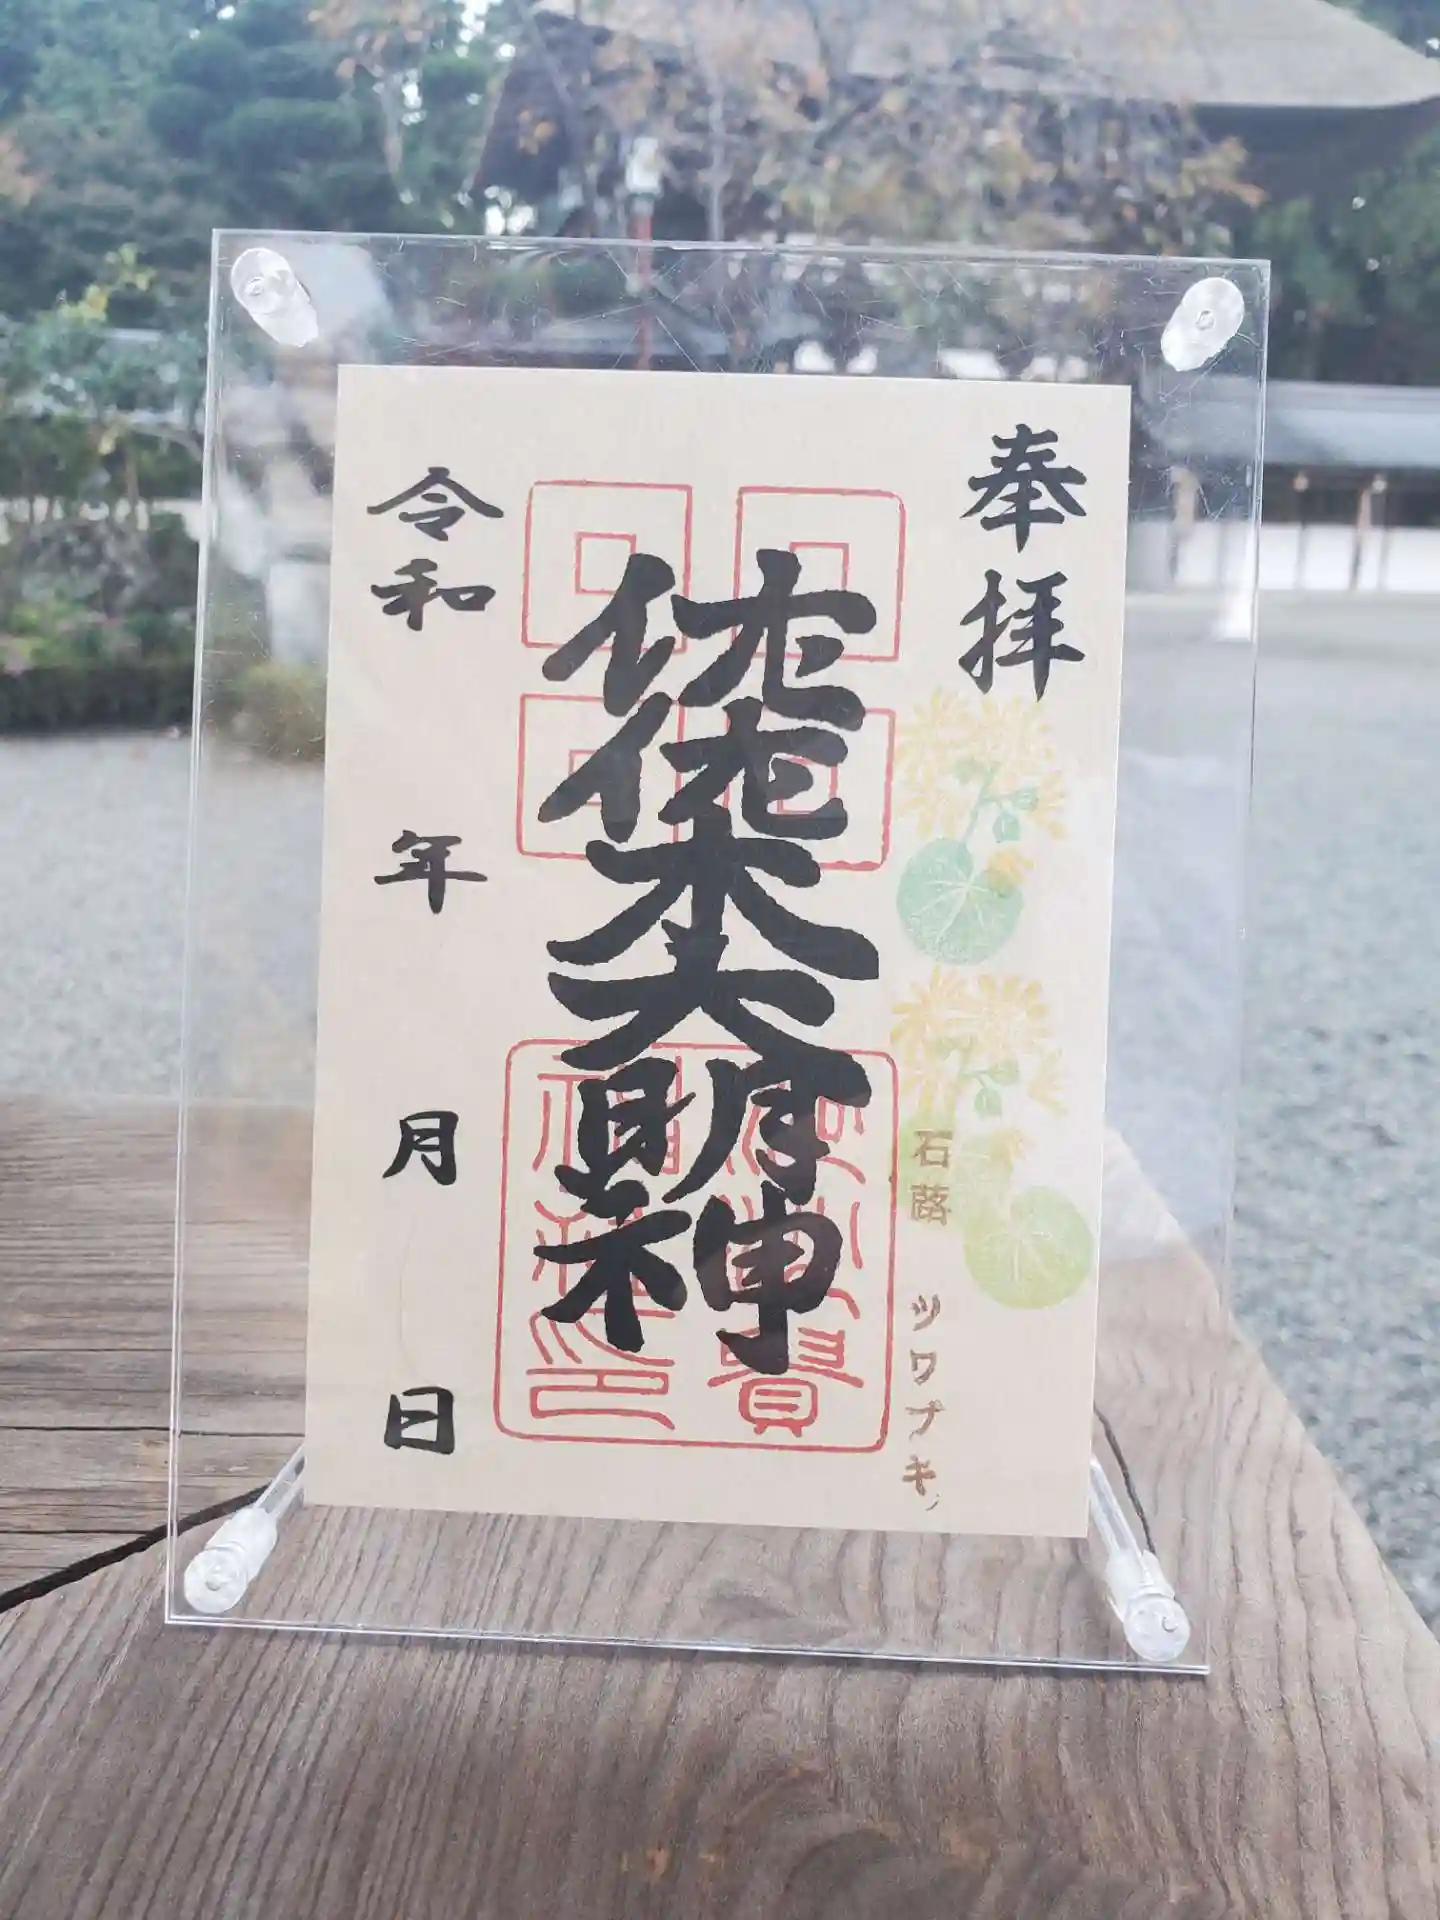 奉拝
石蕗 ツワブキ
佐佐木大明神
令和 年 月 日